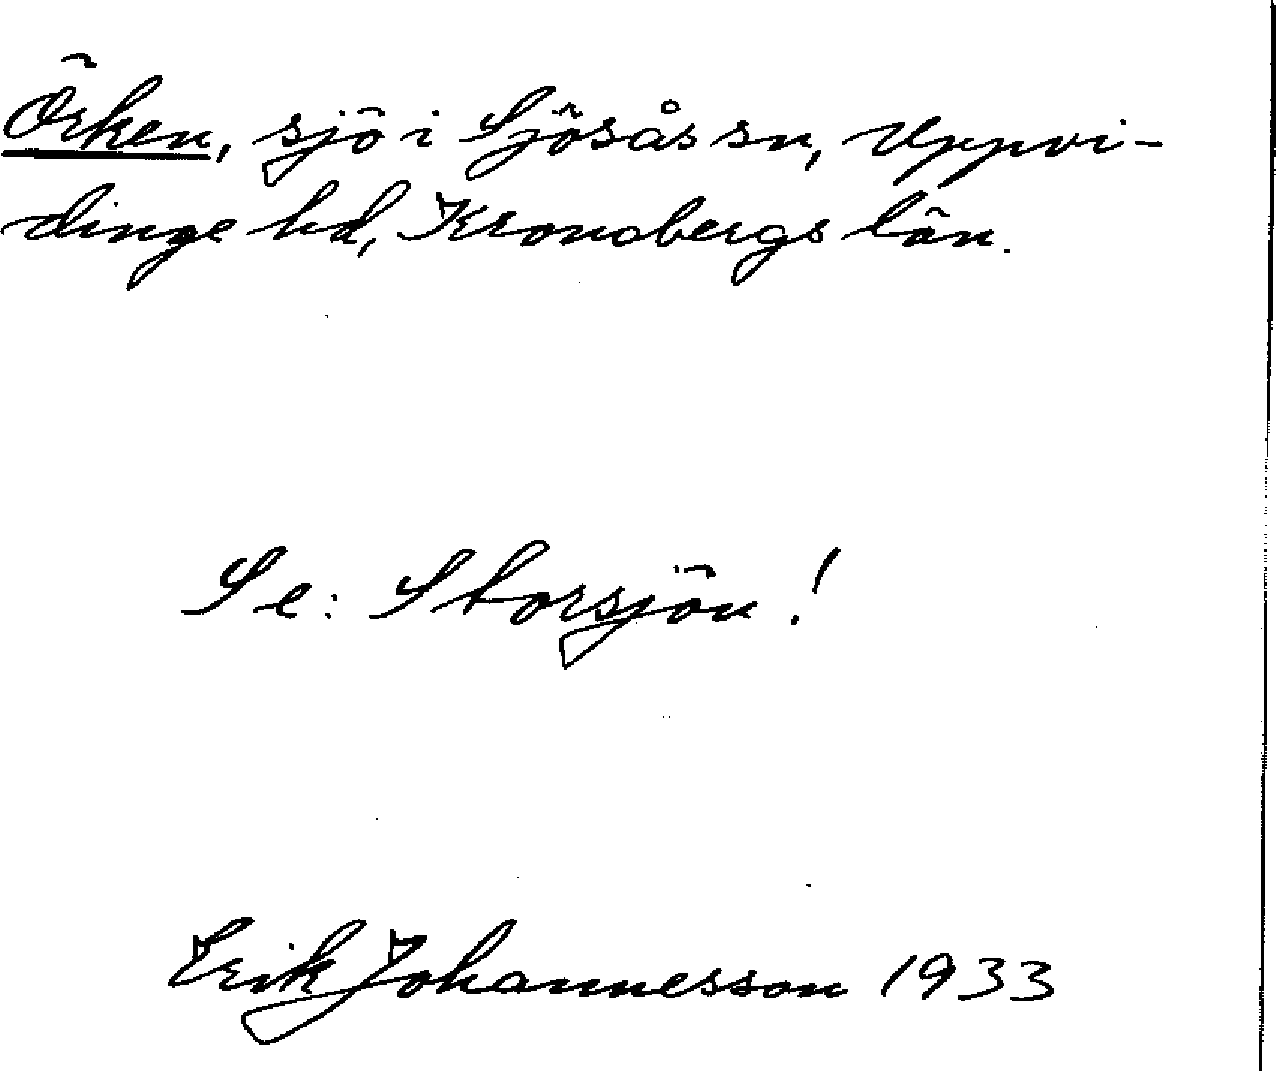 Örken, sjö i Sjösås sn, Uppvi-
dinge hd, Kronobergs län.
Se: Storsjön!
Erik Johannesson 1933